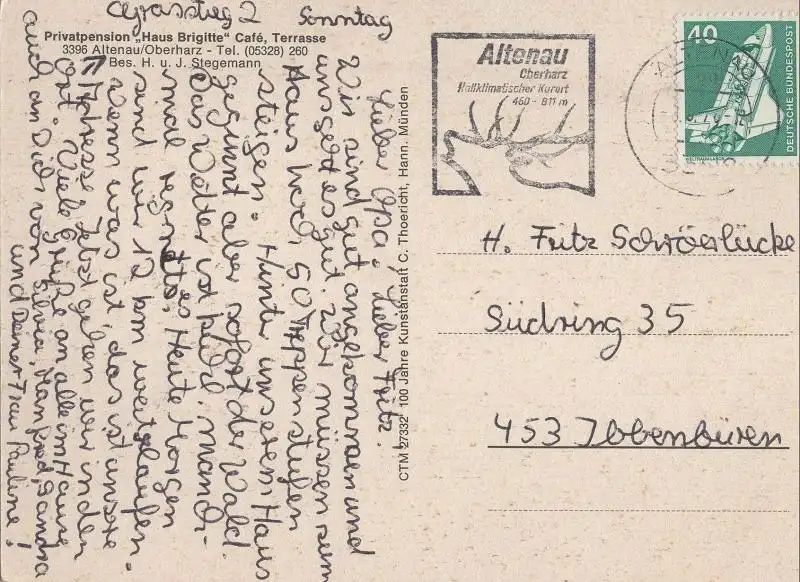 Grasstieg 2 Sonntag
Privatpension „Haus Brigitte" Café, Terrasse
3396 Altenau/Oberharz - Tel. (05328) 260
Bes. H. u. J. Stegemann
Lieber Opa, Lieber Fritz!
Wir sind gut angekommen und
uns geht es gut. Wir müssen zum
Haus hoch, 50 Treppenstufen
steigen. Hinter unserem Haus
beginnt aber sofort der Wald.
Das Wetter ist kühl, manch-
mal regnet es. Heute Morgen
sind wir 12 km weitgelaufen.
Wenn was ist, das ist unsere
Adresse. Jetzt gehen wir in den
Ort. Viele Grüße an alle im Hause
auch an Dich von Silvia, Manfred, Sandra
und Deiner Frau Pauline!
CTM 27332 100 Jahre Kunstanstalt C. Thoericht, Hann. Münden
Altenau
Oberharz
Heilklimatischer Kurort
460 - 811 m
ALTENAU
40
DEUTSCHE BUNDESPOST
WELTRAUMLABOR
H. Fritz Schröerlücke
Südring 35
453 Ibbenbüren